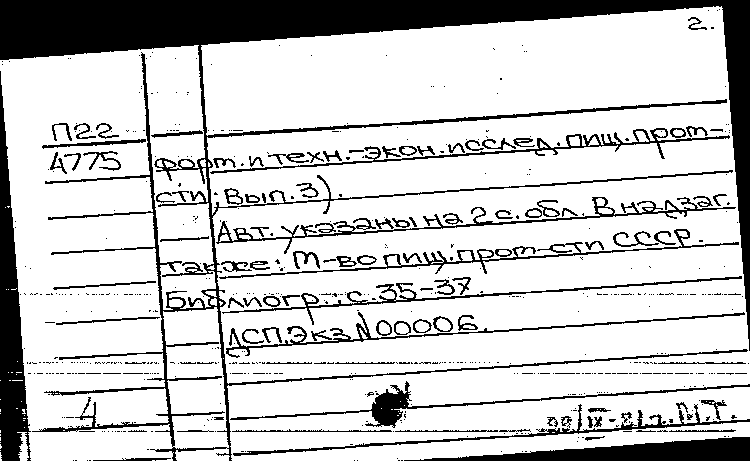 2.
П22
4775 форм. и техн.-экон. исслед. пищ. пром-
сти; Вып. 3).
Авт. указаны на 2 с. обл. В надзаг.
также: М-во пищ. пром-сти СССР.
Библиогр.: с. 35-37.
ДСП. Экз N 00006.
4
/IX-81г. М.Т.